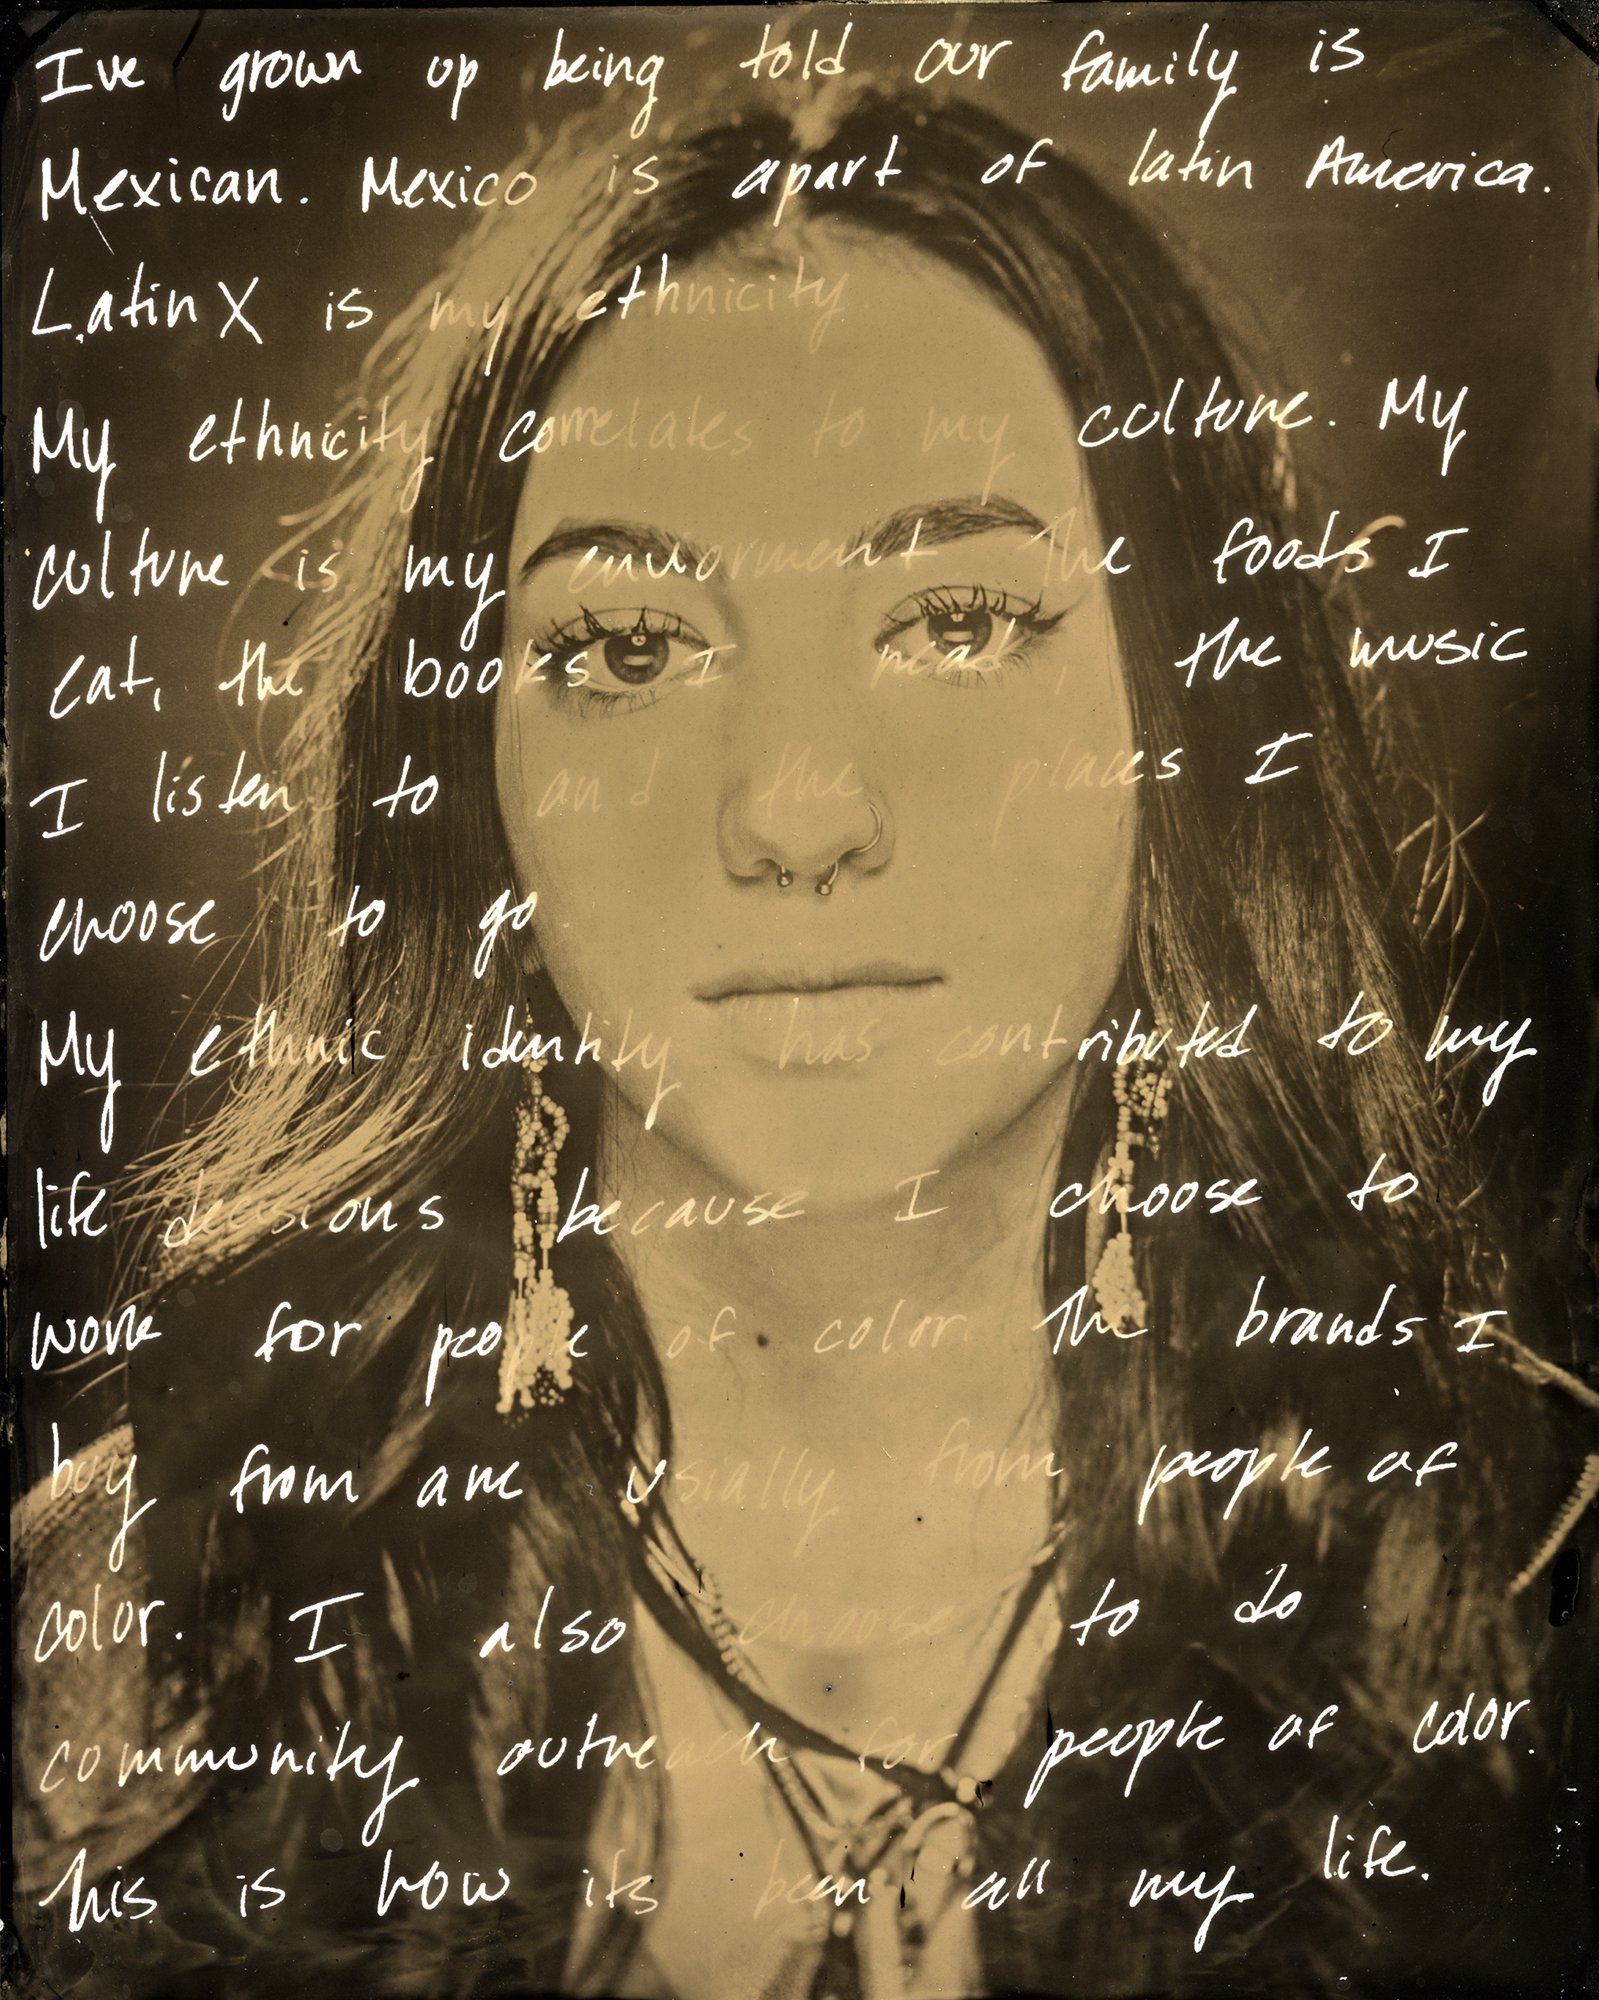 Ive grown up being told our family is
Mexican. Mexico is apart of latin America.
LatinX is my ethnicity.
My ethnicity correlates to my culture. My
culture is my enviorment. The foods I
eat, the books I read, the music
I listen to and the places I
choose to go.
My ethnic identity has contributed to my
life decisions because I choose to
work for people of color. The brands I
buy from are usially from people of
color. I also choose to do
community outreach for people of color.
This is how its been all my life.